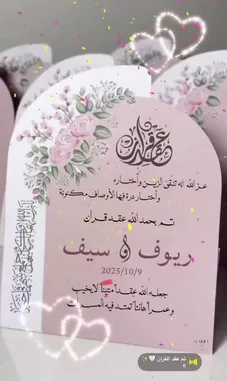 عقد قران
عز الله انه تنقى الزين وأختاره
وأختار درة فيها الأوصاف مكنونة
تم بحمد الله عقد قران
ريوف و سيف
2025/10/9
جعله الله عقداً متيناً لايخيب
وعمراً هانئاً تمتد فيه المسرات
تم عقد القران